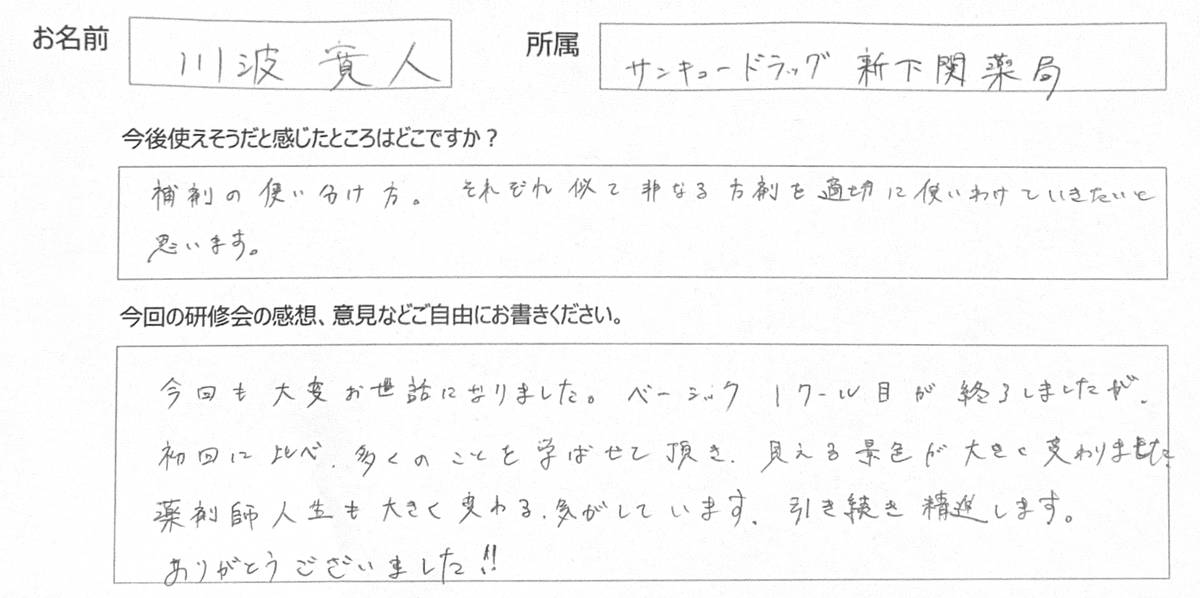 お名前 川波 寛人 所属 サンキュードラッグ 新下関薬局
今後使えそうだと感じたところはどこですか？
補剤の使い分け方。それぞれ似て非なる方剤を適切に使いわけていきたいと
思います。
今回の研修会の感想、意見などご自由にお書きください。
今回も大変お世話になりました。ベーシック1クール目が終了しましたが、
初回に比べ、多くのことを学ばせて頂き、見える景色が大きく変わりました。
薬剤師人生も大きく変わる、気がしています、引き続き精進します。
ありがとうございました!!